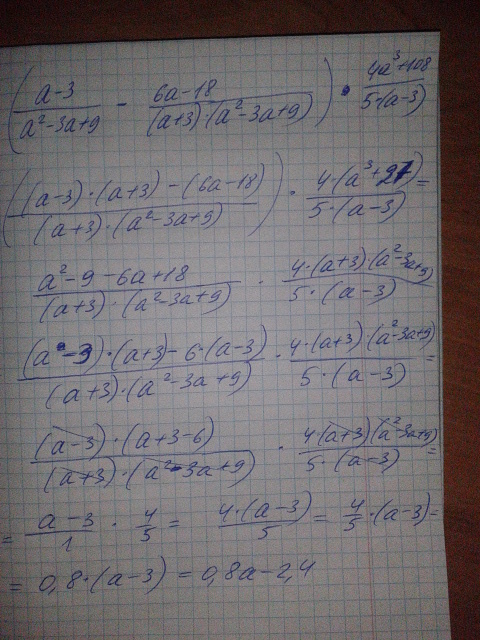 ((a-3)/(a²-3a+9) - (6a-18)/((a+3)·(a²-3a+9))) · (4a³+108)/(5·(a-3))
(((a-3)·(a+3)-(6a-18))/((a+3)·(a²-3a+9))) · (4·(a³+27))/(5·(a-3)) =
(a²-9-6a+18)/((a+3)·(a²-3a+9)) · (4·(a+3)·(a²-3a+9))/(5·(a-3))
((a-3)·(a+3)-6·(a-3))/((a+3)·(a²-3a+9)) · (4·(a+3)·(a²-3a+9))/(5·(a-3)) =
((a-3)·(a+3-6))/((a+3)·(a²-3a+9)) · (4(a+3)(a²-3a+9))/(5·(a-3)) =
= (a-3)/1 · 4/5 = (4·(a-3))/5 = 4/5·(a-3) =
= 0,8·(a-3) = 0,8a-2,4